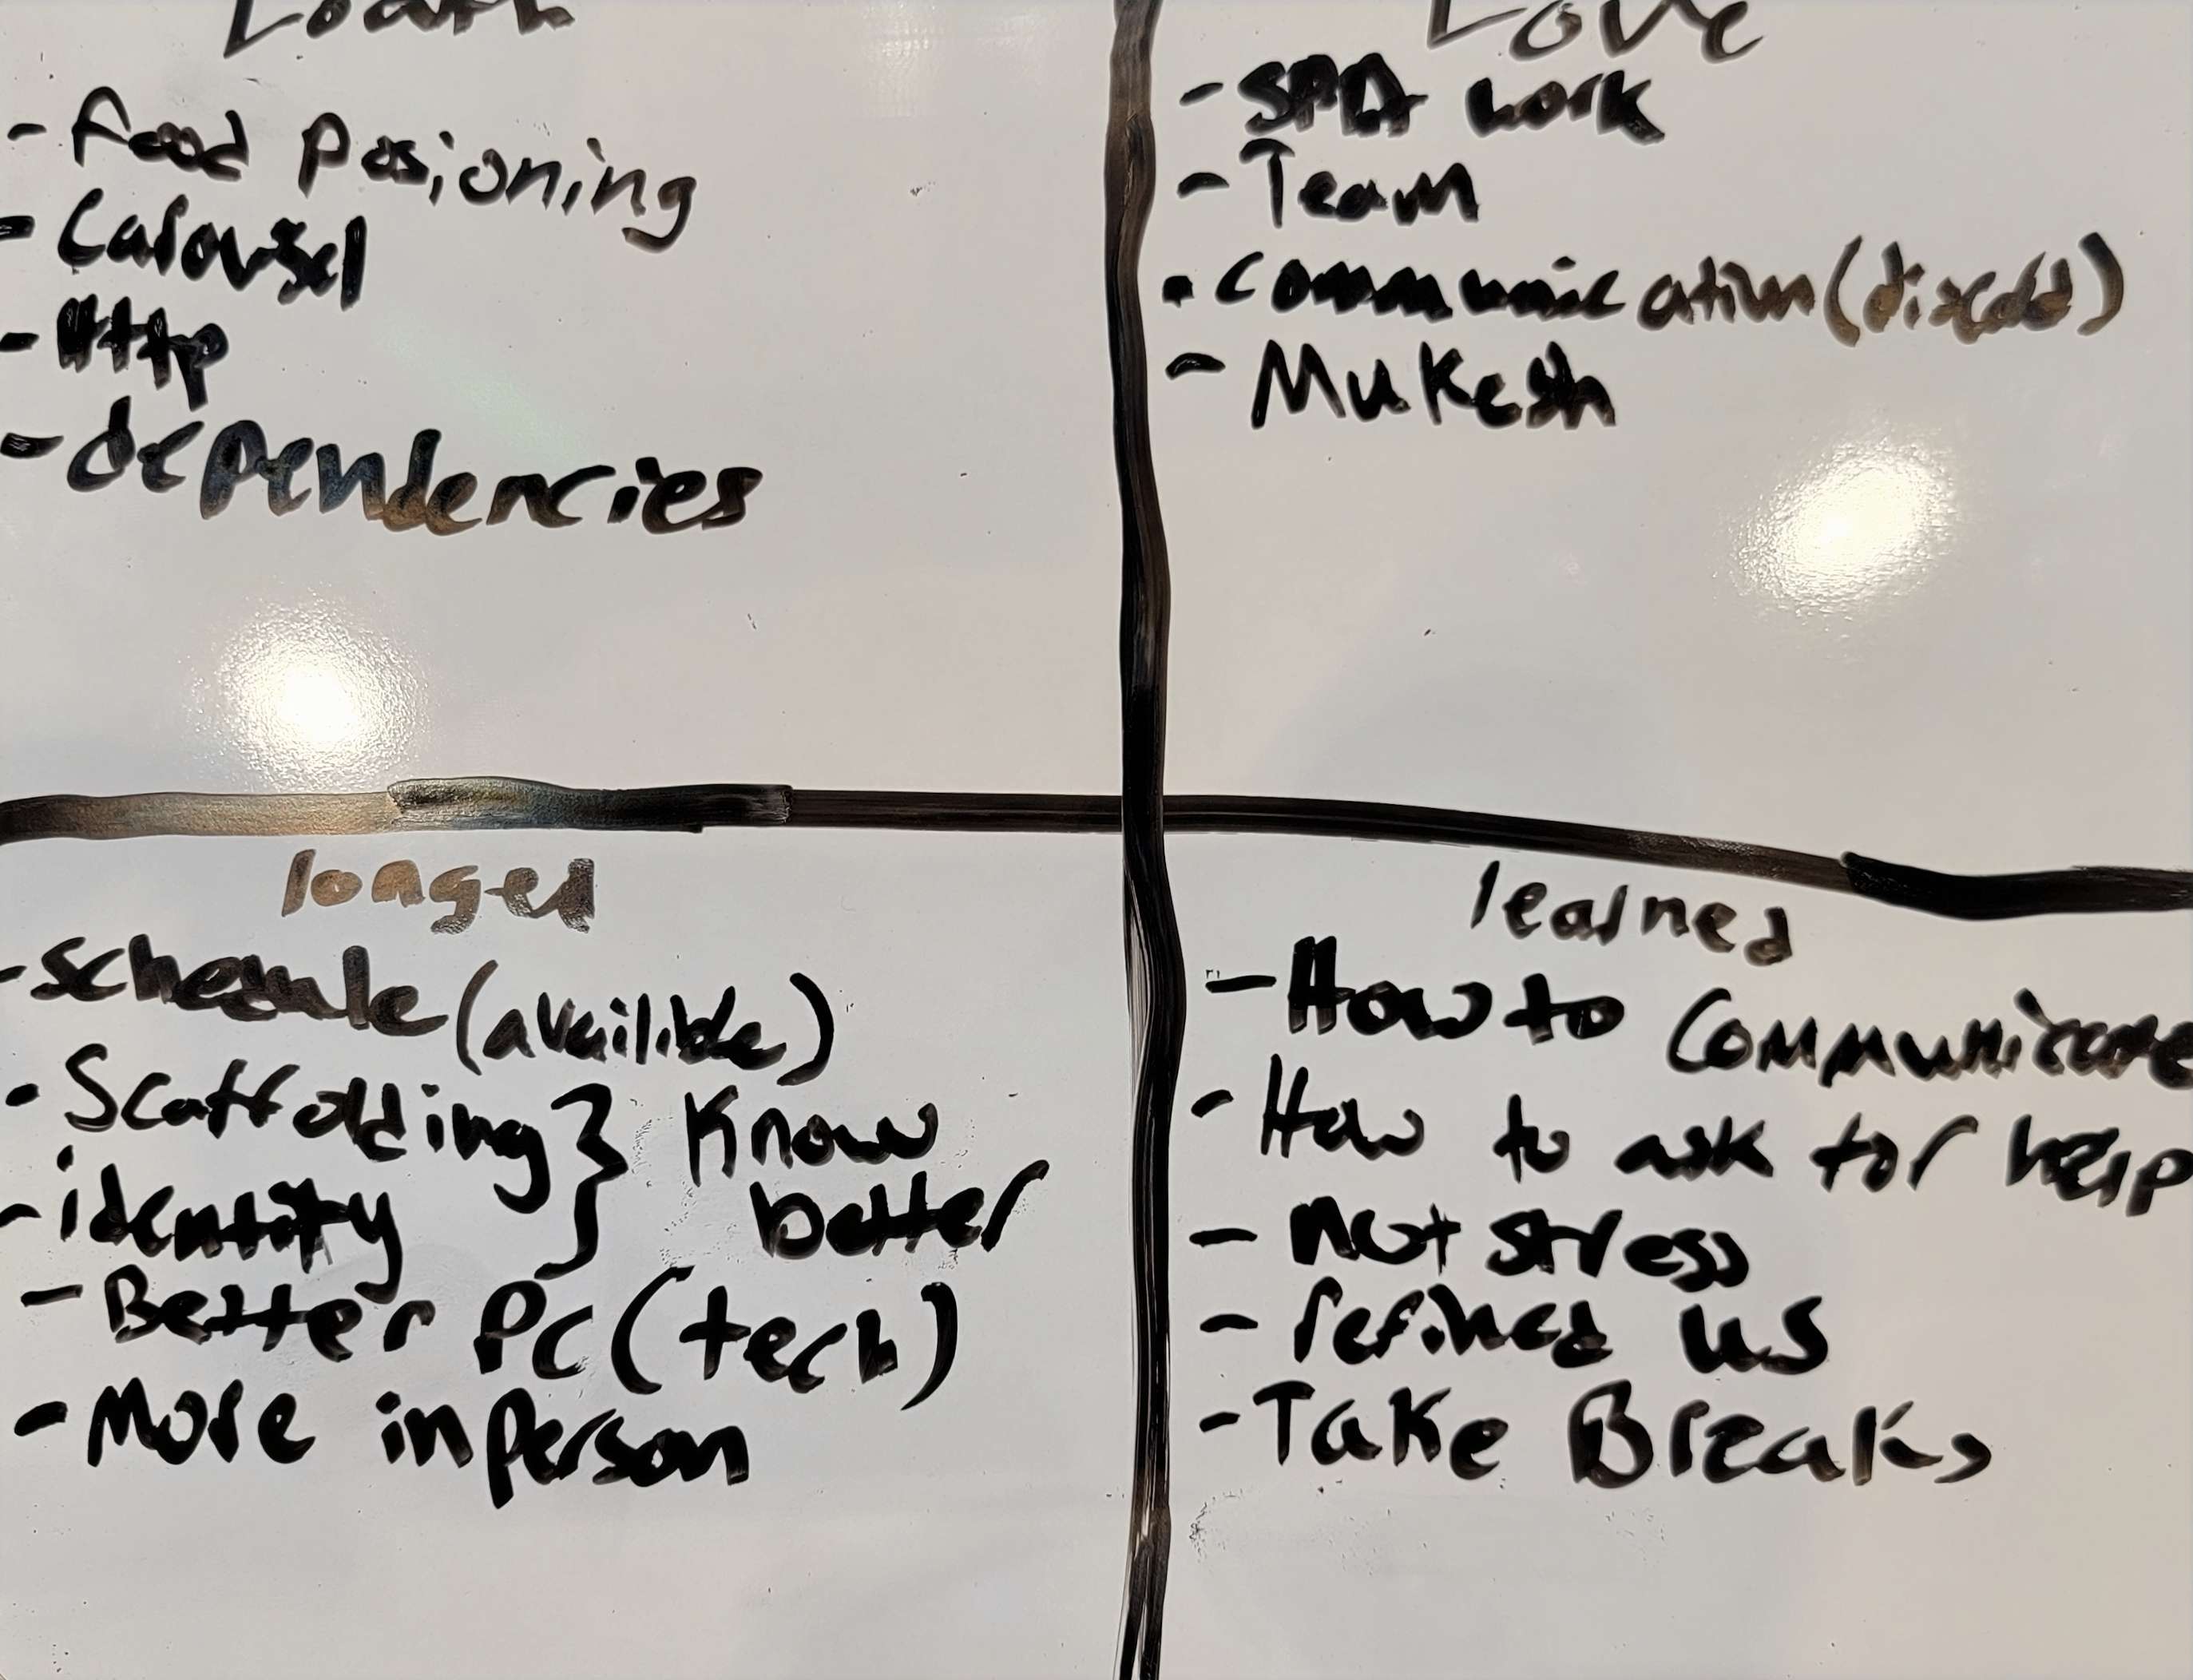 Loath
Love
- food posioning
- Carousel
- Http
- dependencies
- SPA work
- Team
- communication (discord)
- Mukesh
longed
- schedule (availible)
- Scaffolding } Know
- identity } better
- Better PC (tech)
- More in person
learned
- How to Communicate
- How to ask for help
- not stress
- refined us
- Take Breaks